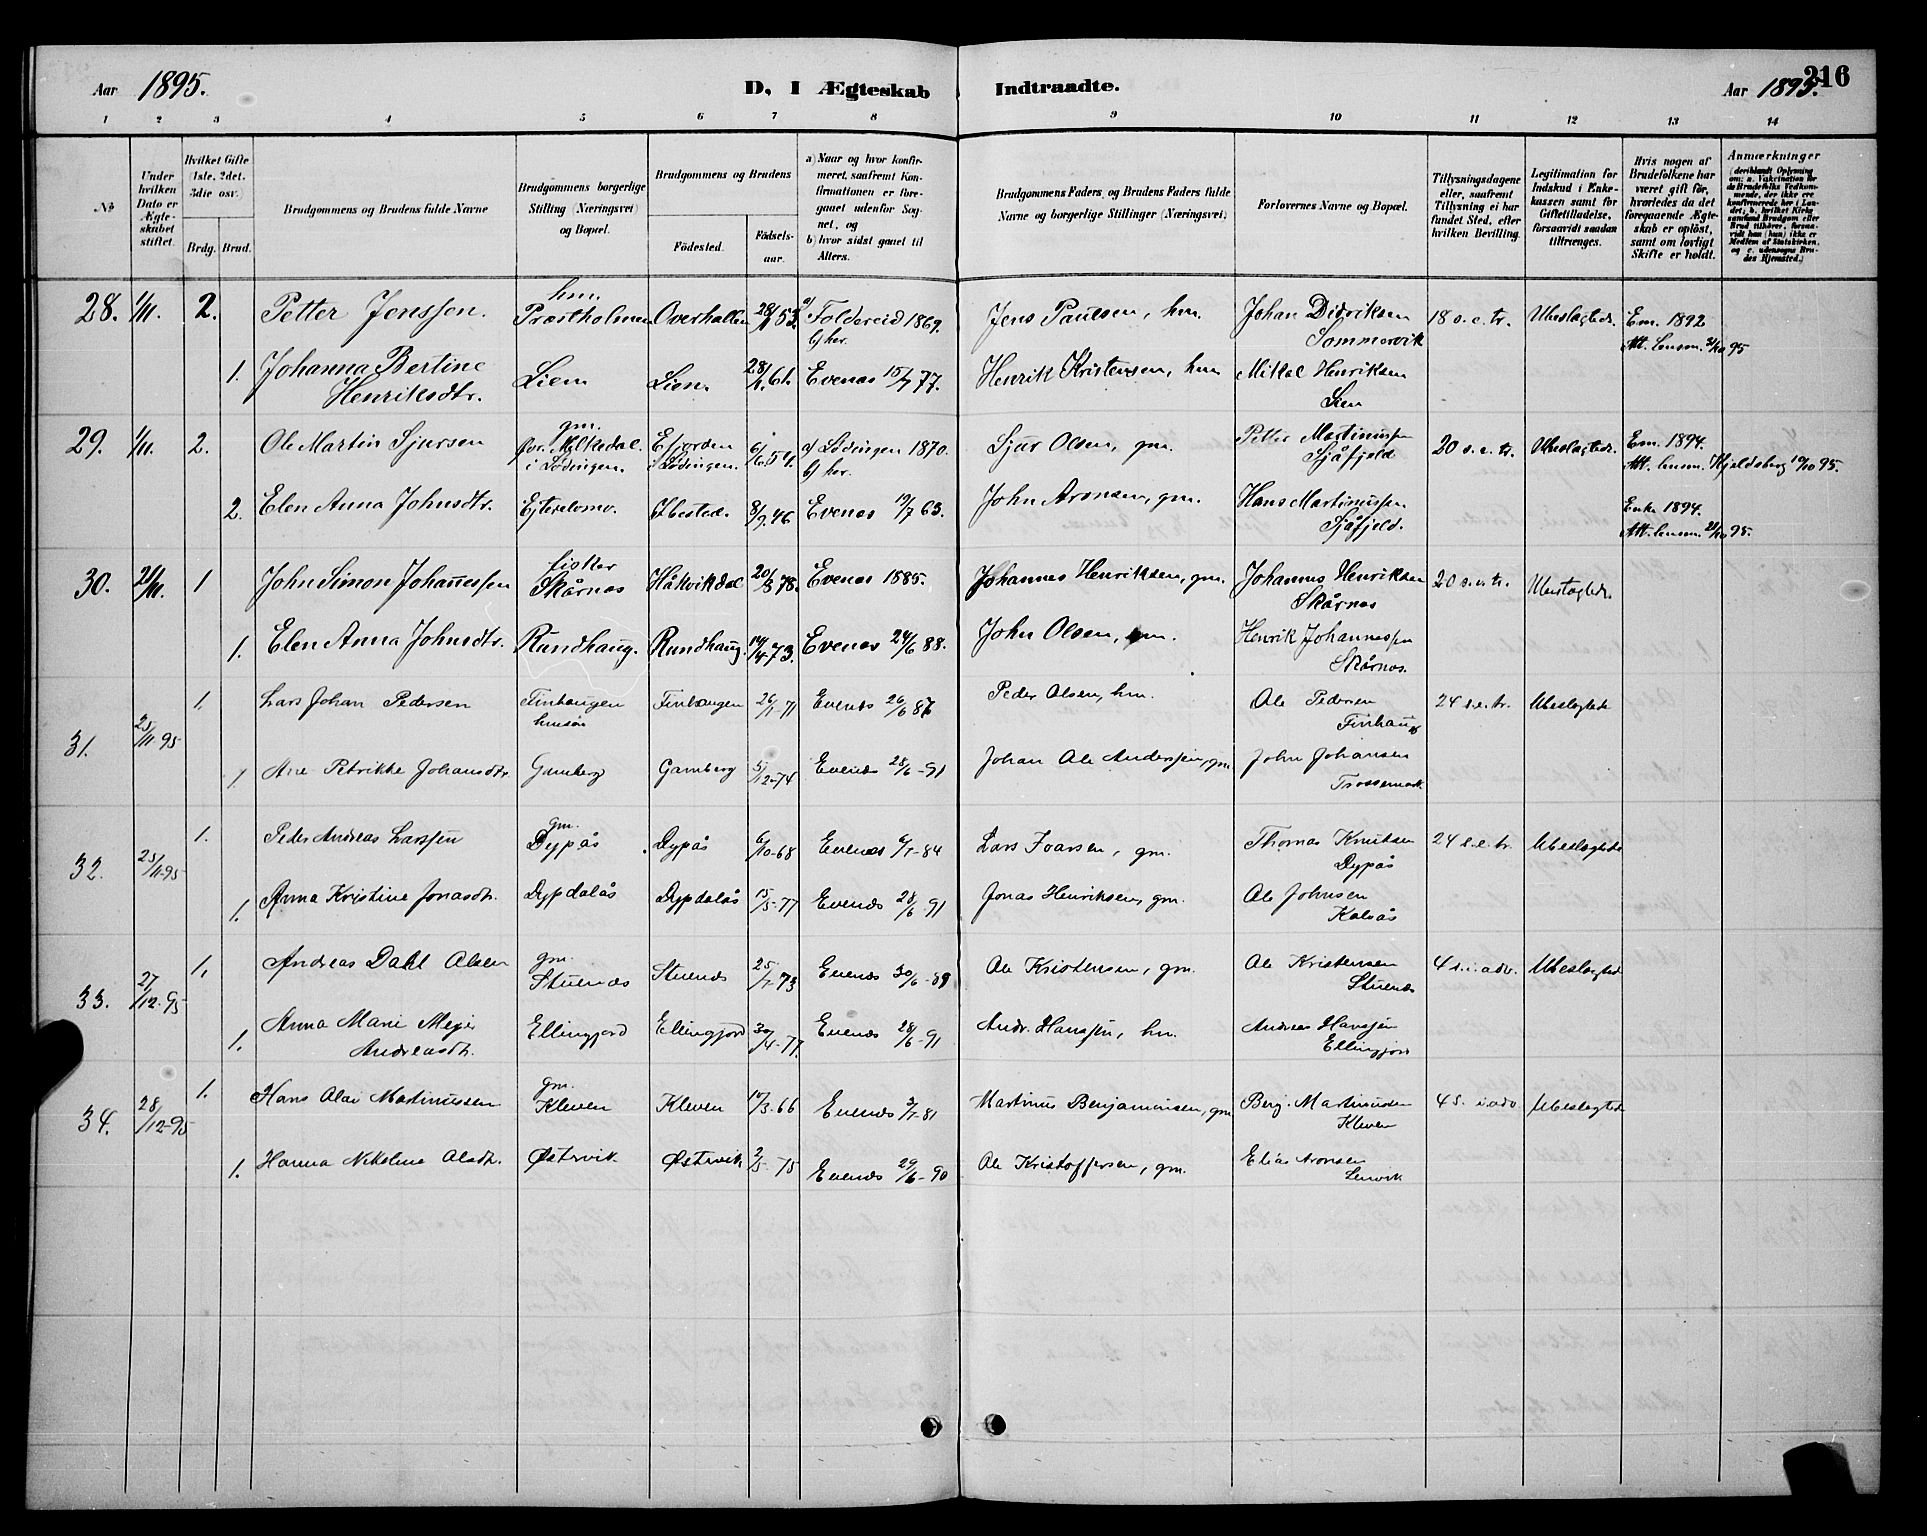 Aar 1895. D. I Ægteskab Indtraadte. Aar 1895. 216
1 2 3 4 5 6 7 8 9 10 11 12 13 14
№
Under hvilken Dato er Ægteskabet stiftet.
Hvilket Gifte (1ste, 2det, 3die osv.)
Brdg. Brud.
Brudgommens og Brudens fulde Navne
Brudgommens borgerlige Stilling (Næringsvei) og Bopæl.
Brudgommens og Brudens
Födested. Födsels-aar.
a) Naar og hvor konfir-
meret, saafremt Kon-
firmationen er fore-
gaaet udenfor Sog-
net, og
b) hvor sidst gaaet til
Alters.
Brudgommens Faders og Brudens Faders fulde
Navne og borgerlige Stillinger (Næringsvei)
Forlovernes Navne og Bopæl.
Tillysningsdagene
eller, saafremt
Tillysning ei har
fundet Sted, efter
hvilken Bevilling.
Legitimation for
Indskud i Enke-
kassen samt for
Giftetilladelse,
forsaavidt saadan
tiltrænges.
Hvis nogen af
Brudefolkene har
været gift för,
hvorledes da det
foregaaende Ægte-
skab er oplöst,
samt om lovligt
Skifte er holdt.
Anmærkninger
(deriblandt Oplysning
om: a. Vakcination for
de Brudefolks Vedkom-
mende, der ikke ere
konfirmerede her i Lan-
det; b. hvilket Kirke-
samfund Brudgom eller
Brud tilhører, forsaa-
vidt han (hun) ikke er
Medlem af Statskirken,
og c. udensogns Bru-
des Hjemsted.)
28. 1/11. 2. Petter Jenssen. hm. Præstholmen Overhallen 28/ 53. a) Foldereid 1869. b) her. Jens Paulsen, hm. Johan Didriksen Sommervik 18 s.e.tr. Ubeslægtede. Em. 1892 Att. lensm. 95
1. Johanna Bertine Henriksdtr. Liem Lien. 28/ 61. Evenæs 15/7 77. Henrik Kristensen, hm Mikal Henriksen Lien
29. 1/11. 2. Ole Martin Sjursen gm. for. Melkedal. i Lødingen. Efjorden i Lødingen. 6/6 54. a) Lødingen 1870. b) her. Sjur Olsen, gm. Petter Martinussen Sjåfjeld 20 s.e.tr. Ubeslægtede. Em. 1894. Att. lensm. Kjeldsberg 10/10 95.
2. Elen Anna Johnsdtr. Ibestad. 8/9 46 Evenæs 19/7 63. John Aronsen, gm. Hans Martinussen Sjåfjeld. Enke 1894. Att. lensm. 28/10 95.
30. 21/11. 1 John Simon Johannessen fisker Skårnæs Håkvikdal 20/3 78. Evenæs 1885. Johannes Henriksen, gm. Johannes Henriksen Skårnæs 20 s.e.tr. Ubeslægtede.
1. Elen Anna Johnsdtr. Rundhaug. Rundhaug. 14/4 73. Evenæs 24/6 88. John Olsen, gm. Henrik Johannessen Skårnæs.
31. 25/11-95 1. Lars Johan Pedersen Finhaugen Finhaugen 26/1 71 Evenæs 26/6 87 Peder Olsen, hm. Ole Pedersen Finhaug 24 s.e.tr. Ubeslægtede
1. Ane Petrikke Johansdtr. Gamberg Gamberg 5/12-74 Evenæs 28/6-91 Johan Ole Anderssen, gm John Johansen Trossemark.
32. 25/11-95 1. Peder Andreas Larssen gm. Dypås Dypås 6/10-68 Evenæs 6/7-84 Lars Ivarsen, gm. Thomas Knutsen Dypås 24 s.e.tr. Ubeslægtede
1. Anna Kristine Jonasdtr. Dypdalås Dypdalås 15/5-77 Evenæs 28/6-91 Jonas Henriksen, gm. Ole Johnsen Kalsås
33. 27/12-95 1. Andreas Dahl Olsen gm. Stuenæs Stuenæs 25/1-73 Evenæs 30/6-89 Ole Kristensen, gm. Ole Kristensen Stuenæs 4 s.i.adv. Ubeslægtede
1. Anna Marie Meyer Andreasdtr. Ellingjord Ellingjord 30/4-77. Evenæs 28/6-91 Andr. Hanssen, hm. Andreas Hanssen Ellingjord
34. 28/12-95 1. Hans Olai Martinussen gm. Kleven Kleven 17/3-66 Evenæs 3/7-81 Martinus Benjaminsen, gm Benj. Martinusen Kleven 4 s. i. adv Ubeslægtede
1. Hanna Nikoline Olsdtr. Østervik Østervik 2/5-75 Evenæs 29/6-90 Ole Kristoffersen, gm. Elias Aronsen Lenvik